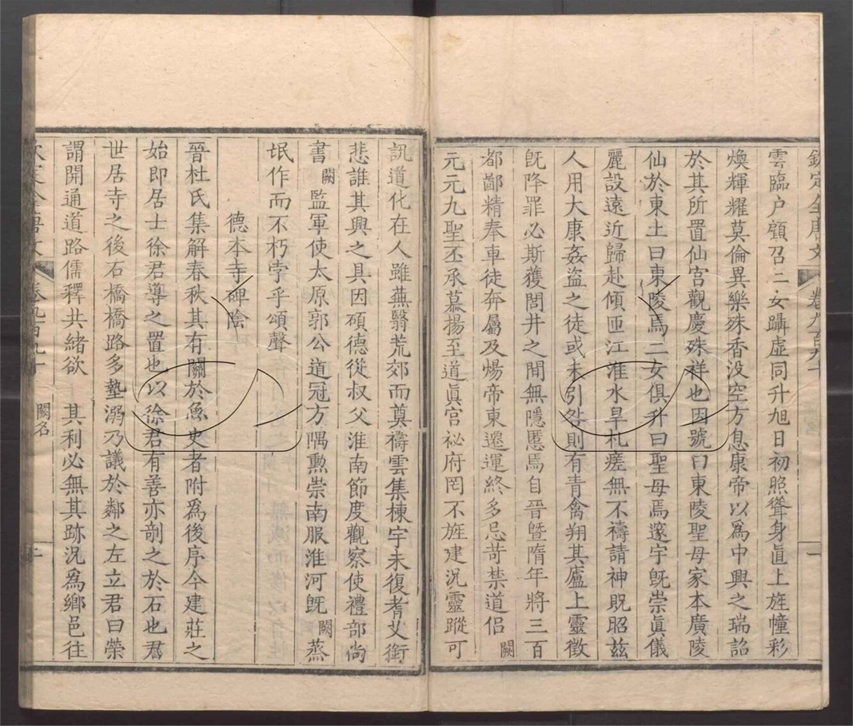 欽定全唐文
卷九百九十
一
雲臨户顧召二女躡虛同升旭日初照聳身直上旌幢彩
煥輝耀莫倫異樂殊香没空方息康帝以爲中興之瑞詔
於其所置仙宫觀慶殊祥也因號曰東陵聖母家本廣陵
仙於東土曰東陵焉二女俱升曰聖母焉邃宇旣崇眞儀
麗設遠近歸赴傾匝江淮水旱札瘥無不禱請神貺昭玆
人用大康姦盜之徒或未引咎則有青禽翔其廬上靈徵
旣降罪必斯獲閭井之間無隱慝焉自晉曁隋年將三百
都鄙精奉車徒奔屬及煬帝東遷運終多忌苛禁道侶闕
元元九聖丕承慕揚至道眞宫祕府罔不旌建況靈蹤可
訊道化在人雖蕪翳荒郊而奠禱雲集棟宇未復耆艾銜
悲誰其興之具因碩德從叔父淮南節度觀察使禮部尚
書闕監軍使太原郭公道冠方隅勲崇南服淮河旣闕蒸
氓作而不朽孛乎頌聲
德本寺碑陰
晉杜氏集解春秋其有關於魚史者附爲後序今建莊之
始即居士徐君導之置也以徐君有善亦剖之於石也君
世居寺之後石橋橋路多墊溺乃議於鄰之左立君曰榮
謂開通道路儒釋共緒欲 其利必無其跡況爲鄉邑往
欽定全唐文
闕名